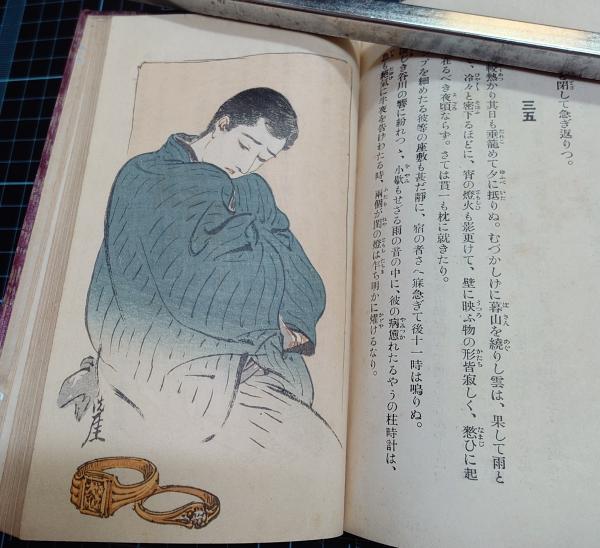 閉して急ぎ返りつ。
三五
熱かり其日も垂籠めて夕に抵りぬ。むづかしげに暮山を繞りし雲は、果して雨と
、冷々と密下るほどに、宵の燈火も影更けて、壁に映ふ物の形皆寂しく、憖ひに起
在るべき夜頃ならず。さては貫一も枕に就きたり。
プを細めたる彼等の座敷も甚だ靜に、宿の者さへ寐急ぎて後十一時は鳴りぬ。
しき谷川の響に紛れつゝ、小歇もせざる雨の音の中に、彼の病憊れたるやうの柱時計は、
も絶氣に半夜を告げわたる時、兩個が閨の燈は乍ち明かに耀けるなり。